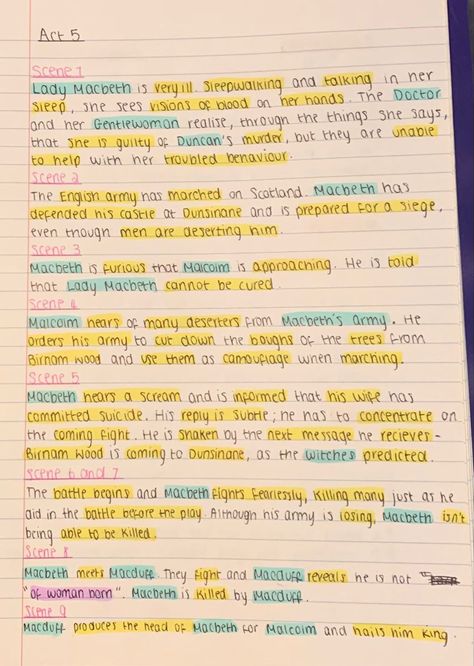 Act 5
Scene 1
Lady Macbeth is very ill. Sleepwalking and talking in her
sleep, she sees visions of blood on her hands. The Doctor
and her Gentlewoman realise, through the things she says,
that she is guilty of Duncan's murder, but they are unable
to help with her troubled behaviour.
Scene 2
The English army has marched on Scotland. Macbeth has
defended his castle at Dunsinane and is prepared for a siege,
even though men are deserting him.
Scene 3
Macbeth is furious that Malcolm is approaching. He is told
that Lady Macbeth cannot be cured.
Scene 4
Malcolm hears of many deserters from Macbeth's army. He
orders his army to cut down the boughs of the trees from
Birnam Wood and use them as camouflage when marching.
Scene 5
Macbeth hears a scream and is informed that his wife has
committed suicide. His reply is subtle; he has to concentrate on
the coming fight. He is shaken by the next message he recieves -
Birnam Wood is coming to Dunsinane, as the witches predicted.
Scene 6 and 7
The battle begins and Macbeth fights fearlessly, killing many just as he
did in the battle before the play. Although his army is losing, Macbeth isn't
being able to be killed.
Scene 8
Macbeth meets Macduff. They fight and Macduff reveals he is not "
"of woman born". Macbeth is killed by Macduff.
Scene 9
Macduff produces the head of Macbeth for Malcolm and hails him king.